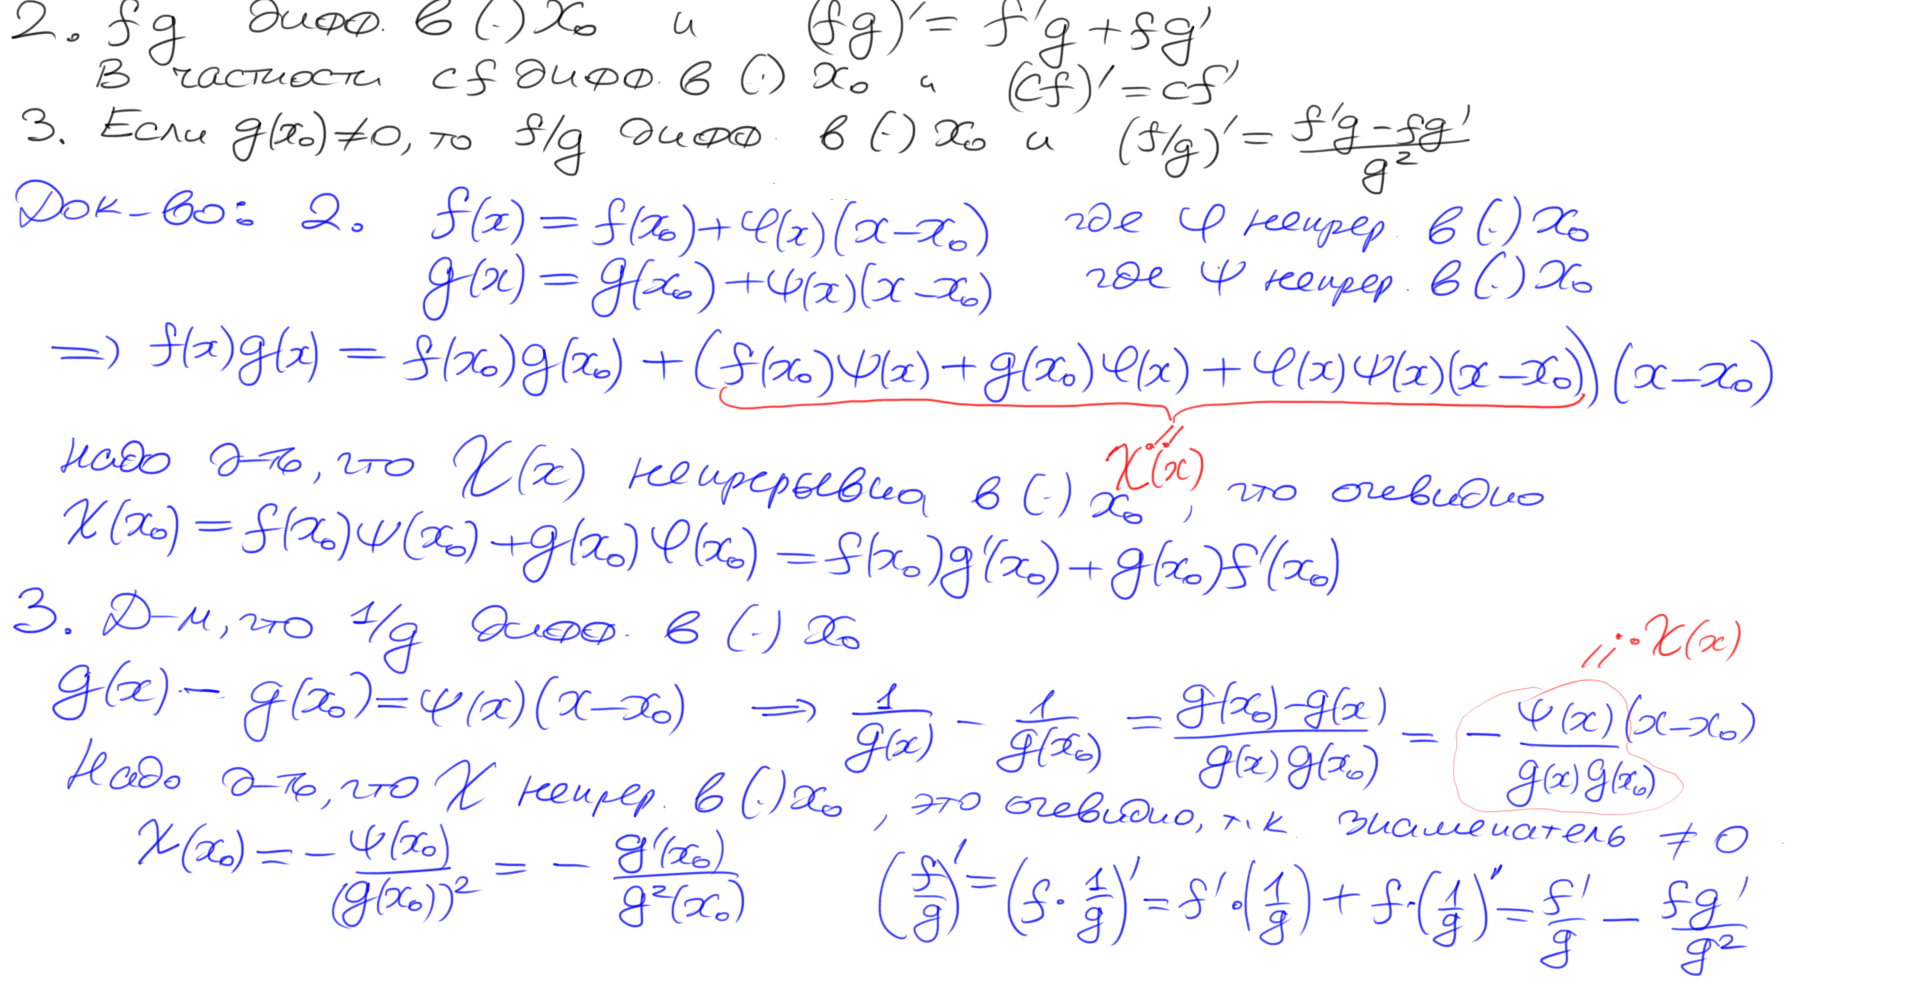 2. fg дифф. в (·) x₀ и (fg)' = f'g + fg'
В частности cf дифф. в (·) x₀ и (cf)' = cf'
3. Если g(x₀) ≠ 0, то f/g дифф. в (·) x₀ и (f/g)' = (f'g - fg')/g²
Док-во: 2. f(x) = f(x₀) + φ(x)(x - x₀) где φ непрер. в (·) x₀
g(x) = g(x₀) + ψ(x)(x - x₀) где ψ непрер. в (·) x₀
=> f(x)g(x) = f(x₀)g(x₀) + (f(x₀)ψ(x) + g(x₀)φ(x) + φ(x)ψ(x)(x - x₀))(x - x₀)
χ(x)
надо д-ть, что χ(x) непрерывна в (·) x₀, что очевидно
χ(x₀) = f(x₀)ψ(x₀) + g(x₀)φ(x₀) = f(x₀)g'(x₀) + g(x₀)f'(x₀)
3. Д-м, что 1/g дифф. в (·) x₀
χ(x)
g(x) - g(x₀) = ψ(x)(x - x₀) => 1/g(x) - 1/g(x₀) = (g(x₀) - g(x))/(g(x)g(x₀)) = - ψ(x)/(g(x)g(x₀)) (x - x₀)
Надо д-ть, что χ непрер. в (·) x₀, это очевидно, т.к. знаменатель ≠ 0
χ(x₀) = - ψ(x₀)/(g(x₀))² = - g'(x₀)/g²(x₀) (f/g)' = (f · 1/g)' = f' · (1/g) + f · (1/g)' = f'/g - fg'/g²